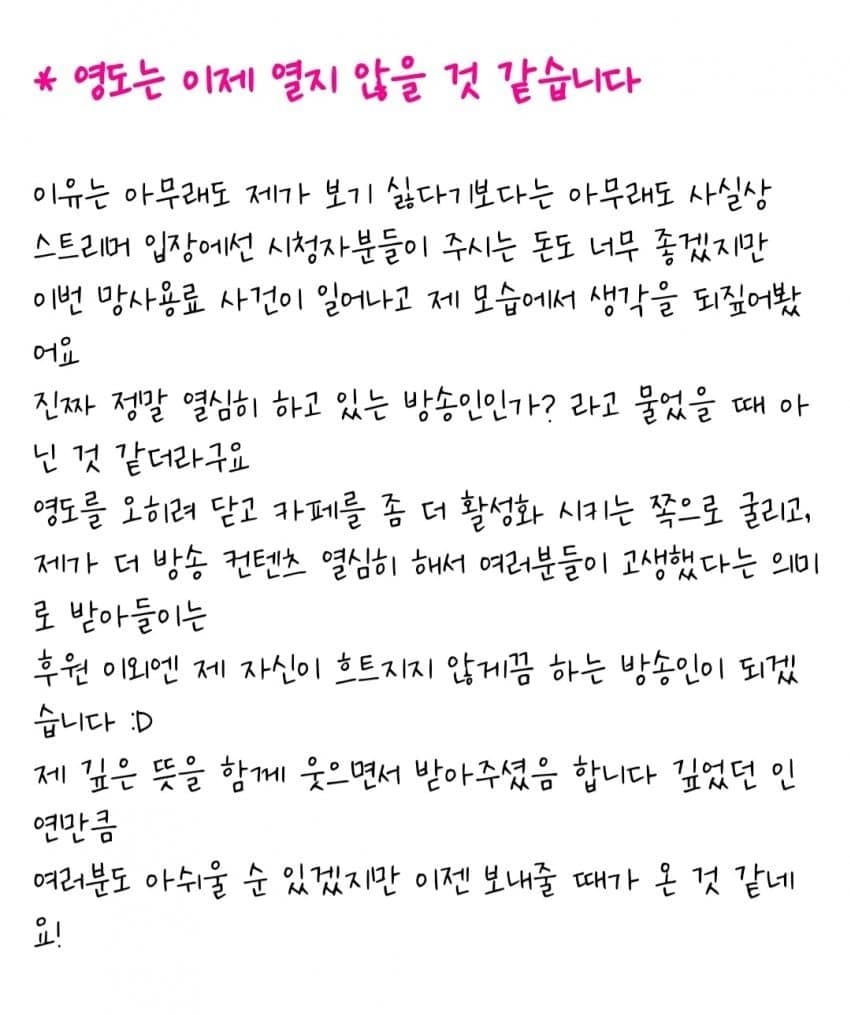 * 영도는 이제 열지 않을 것 같습니다
이유는 아무래도 제가 보기 싫다기보다는 아무래도 사실상
스트리머 입장에선 시청자분들이 주시는 돈도 너무 좋겠지만
이번 망사용료 사건이 일어나고 제 모습에서 생각을 되짚어봤
어요
진짜 정말 열심히 하고 있는 방송인인가? 라고 물었을 때 아
닌 것 같더라구요
영도를 오히려 닫고 카페를 좀 더 활성화 시키는 쪽으로 굴리고,
제가 더 방송 컨텐츠 열심히 해서 여러분들이 고생했다는 의미
로 받아들이는
후원 이외엔 제 자신이 흐트지지 않게끔 하는 방송인이 되겠
습니다 :D
제 깊은 뜻을 함께 웃으면서 받아주셨음 합니다 깊었던 인
연만큼
여러분도 아쉬울 순 있겠지만 이젠 보내줄 때가 온 것 같네
요!